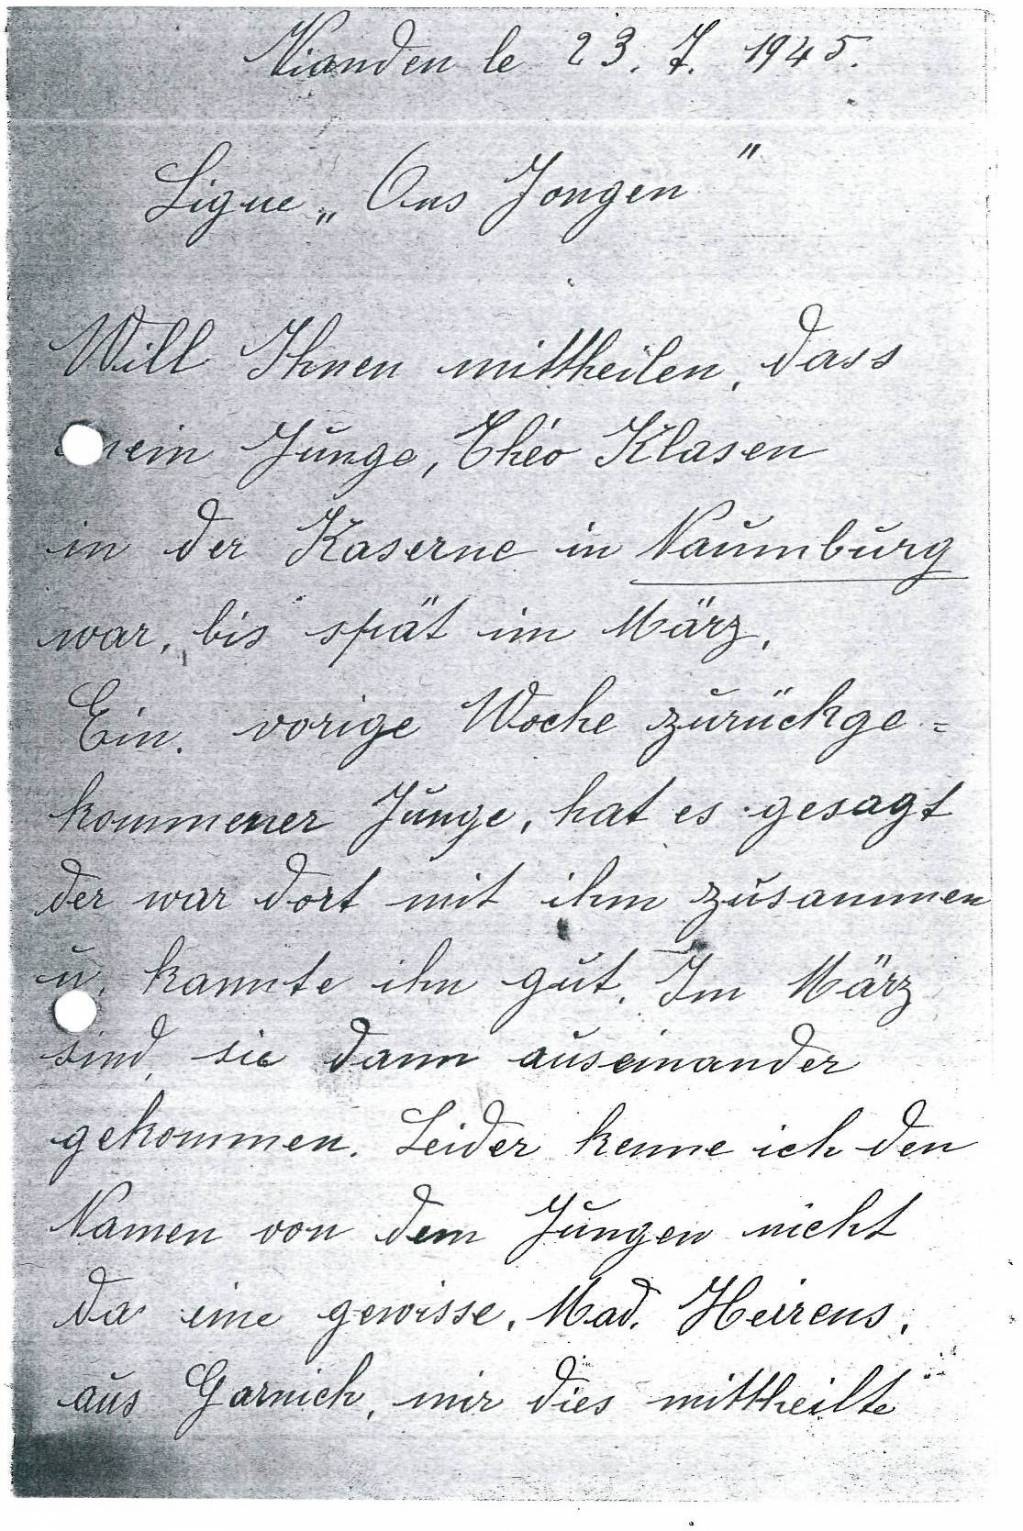 Vianden le 23. 7. 1945.
Ligue „Ons Jongen"
Will Ihnen mittheilen, dass
mein Junge, Théo Klasen
in der Kaserne in Naumburg
war, bis spät im März.
Ein. vorige Woche zurückge=
kommener Junge, hat es gesagt
der war dort mit ihm zusammen
u. kannte ihn gut. Im März
sind sie dann auseinander
gekommen. Leider kenne ich den
Namen von dem Jungen nicht
da eine gewisse, Mad. Heirens,
aus Garnich, mir dies mittheilte